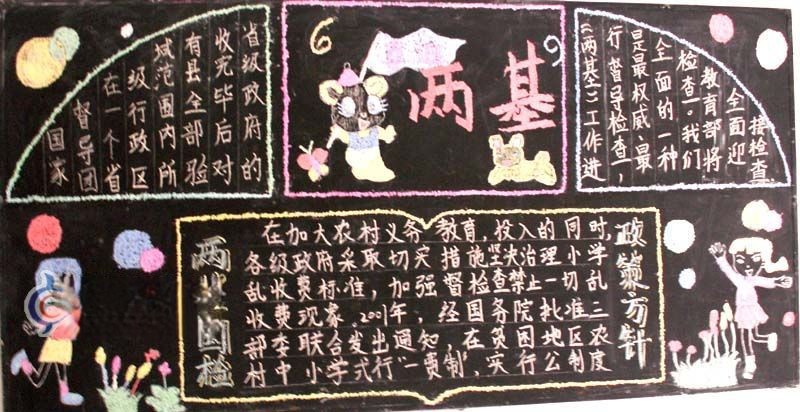 国家
督导团
在一个省
级行政区
域范围内所
有县全部验
收完毕后对
省级政府的
两基
《两基》工作进
行督导检查,
是最权威、最
全面的一种
检查。我们
教育部将
全面迎
接检查
两基国检
在加大农村义务教育,投入的同时,
各级政府采取切实措施坚决治理小学
乱收费标准,加强督检查禁止一切乱
收费现象、2001年、经国务院批准三
部委联合发出通知,在贫困地区农
村中小学式行“一责制”,实行公制度
政策方针